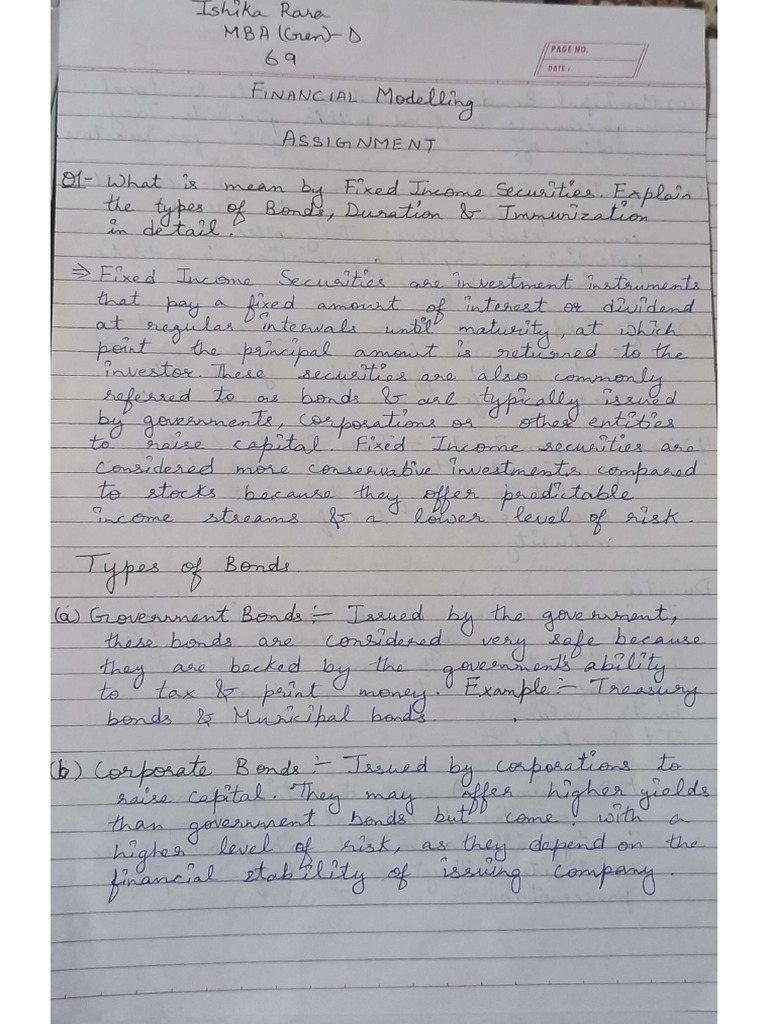 Ishika Rana
MBA (Gen)-D
69
PAGE NO.
DATE:
FINANCIAL Modelling
ASSIGNMENT
Q1- What is mean by Fixed Income Securities. Explain
the types of Bonds, Duration & Immunization
in detail.
⇒ Fixed Income Securities are investment instruments
that pay a fixed amount of interest or dividend
at regular intervals until maturity, at which
point the principal amount is returned to the
investor. These securities are also commonly
referred to as bonds & are typically issued
by governments, corporations or other entities
to raise capital. Fixed Income securities are
considered more conservative investments compared
to stocks because they offer predictable
income streams & a lower level of risk.
Types of Bonds.
(a) Government Bonds :- Issued by the government,
these bonds are considered very safe because
they are backed by the government's ability
to tax & print money. Example :- Treasury
bonds & Municipal bonds.
(b) Corporate Bonds :- Issued by corporations to
raise capital. They may offer higher yields
than government bonds but come with a
higher level of risk, as they depend on the
financial stability of issuing company.